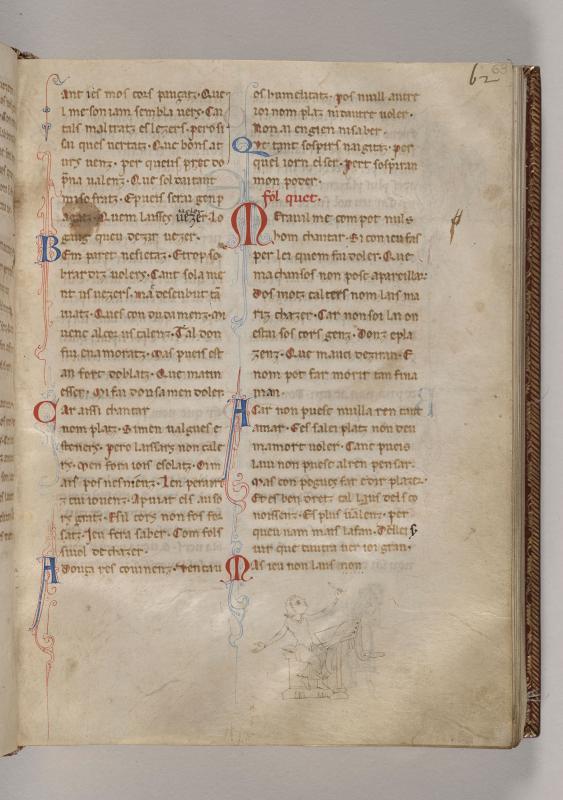 62
63
ant ies mos cors pansatz. Que
l me son iam sembla uers. Cai
tals maltratz es lezers. pero si
Que bon sat
urs uenz. per queus prec do
pna ualenz. Que sol daitant
mi sofratz. Epueis serai gen
Quem laisses uezer lo
gaug queu dezir uezer.
Em paret nesietaz. Etrop so
brardiz uolers. Cant sola me
ment descubrit
uiatz. Ques con
uenc al cor us talenz. Tal don
fui enamoratz. Mas pueis es
an fort doblatz. Que matin
esser. Mi fai dousamen doler.
Car aissi chantar
nom platz. Bimen ualgues e
steners. pero laissars non cale
rs. Men fora iois esolatz.
ais pos nesmenz. Len perairs
apuiar els auso
rs gintz. Esil cors non fos fos
satz. Jeu fera saber. Com fols
simol dechazer.
A douza res couinenz. Ven cau
os humelitatz. pos nuill autre
ioi nom platz ni dautre uoler.
Non ai engien ni saber.
Qe tant sospirs nai gitz. per
quel iorn elser. pert sospiran
mon poder.
fol quet.
Merauil me com pot nuls
hom chantar. Si con ieu fas
per lei quem fai doler. Que
ma chansos non posc apareillar
Dos motz cal ters nom lais ma
riz chazer. Car non soi lai on
estai sos cors genz. Douz epla
zenz. Que mauci deziran. E
nom pot far morir tan fina
man.
A Car non puesc nuilla ren tant
amar. Ges falei platz non deu
mamort uoler. Canc pueis
laui non puesc alren pensar.
Mas con pogues far edir plazer.
Et es ben dretz cal laus dels co
noissenz. Es plus ualenz. per
queu nam mais lafan. Delliei
uir que dautra ner ioi gran.
Mas ieu non laus mon